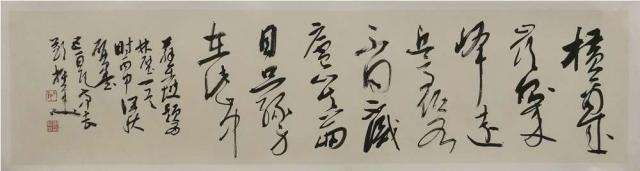 横看成
岭侧成
峰远
近高低各
不同不识
庐山真面
目只缘身
在此山中
苏东坡题西
林壁一首
时丙申深秋